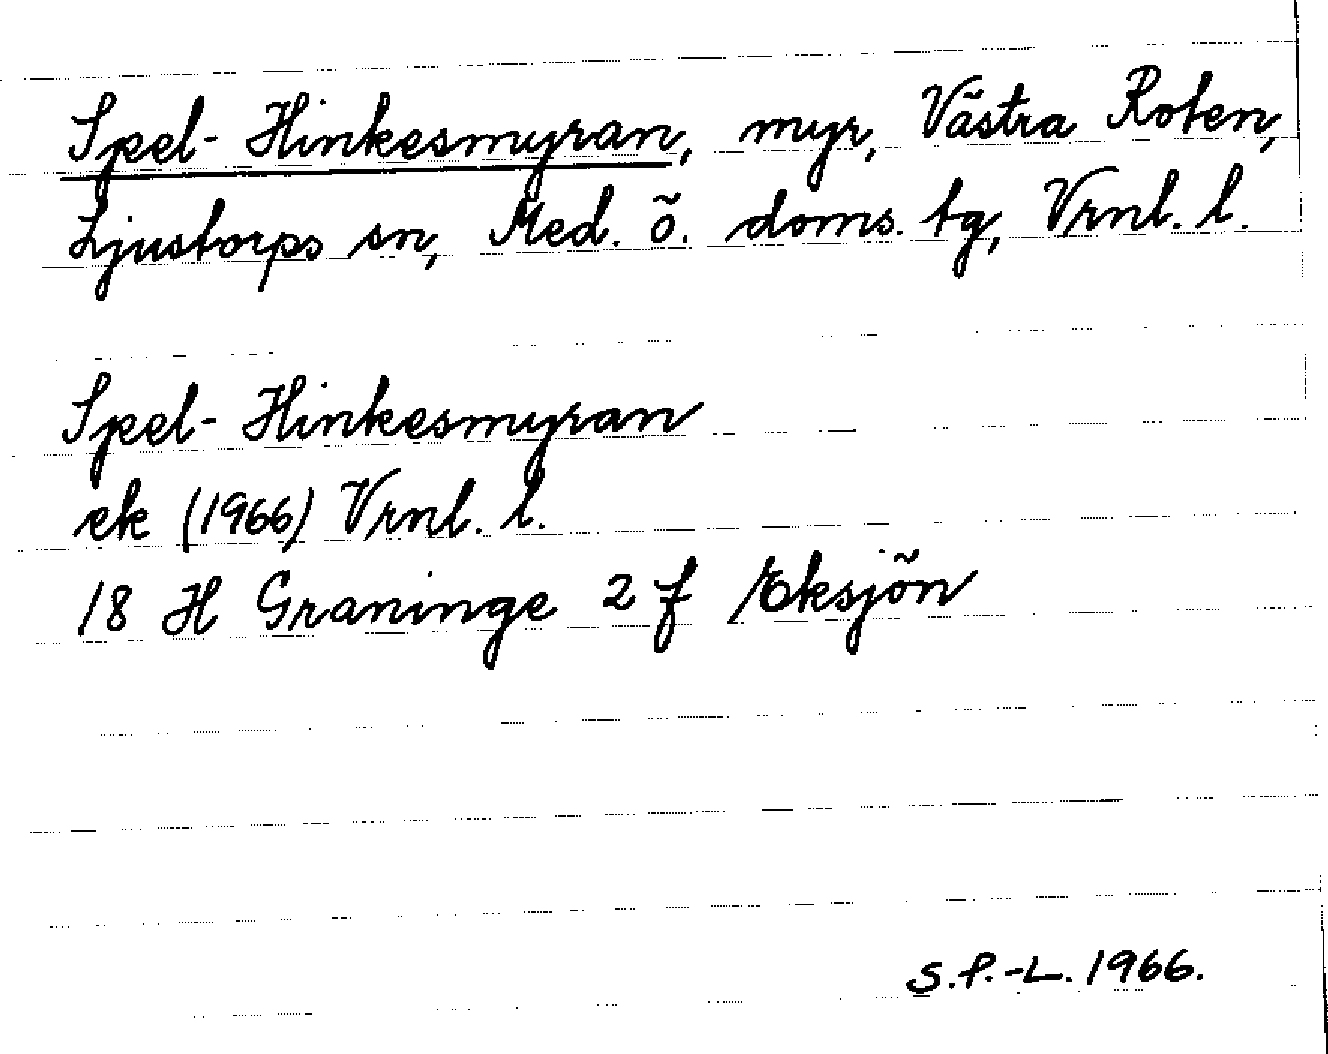 Spel-Hinkesmyran, myr, Västra Roten,
Ljustorps sn, Med. ö. doms. tg, Vrnl. l.
Spel-Hinkesmyran
ek (1966) Vrnl. l.
18 H Graninge 2 f Eksjön
S.P.-L. 1966.